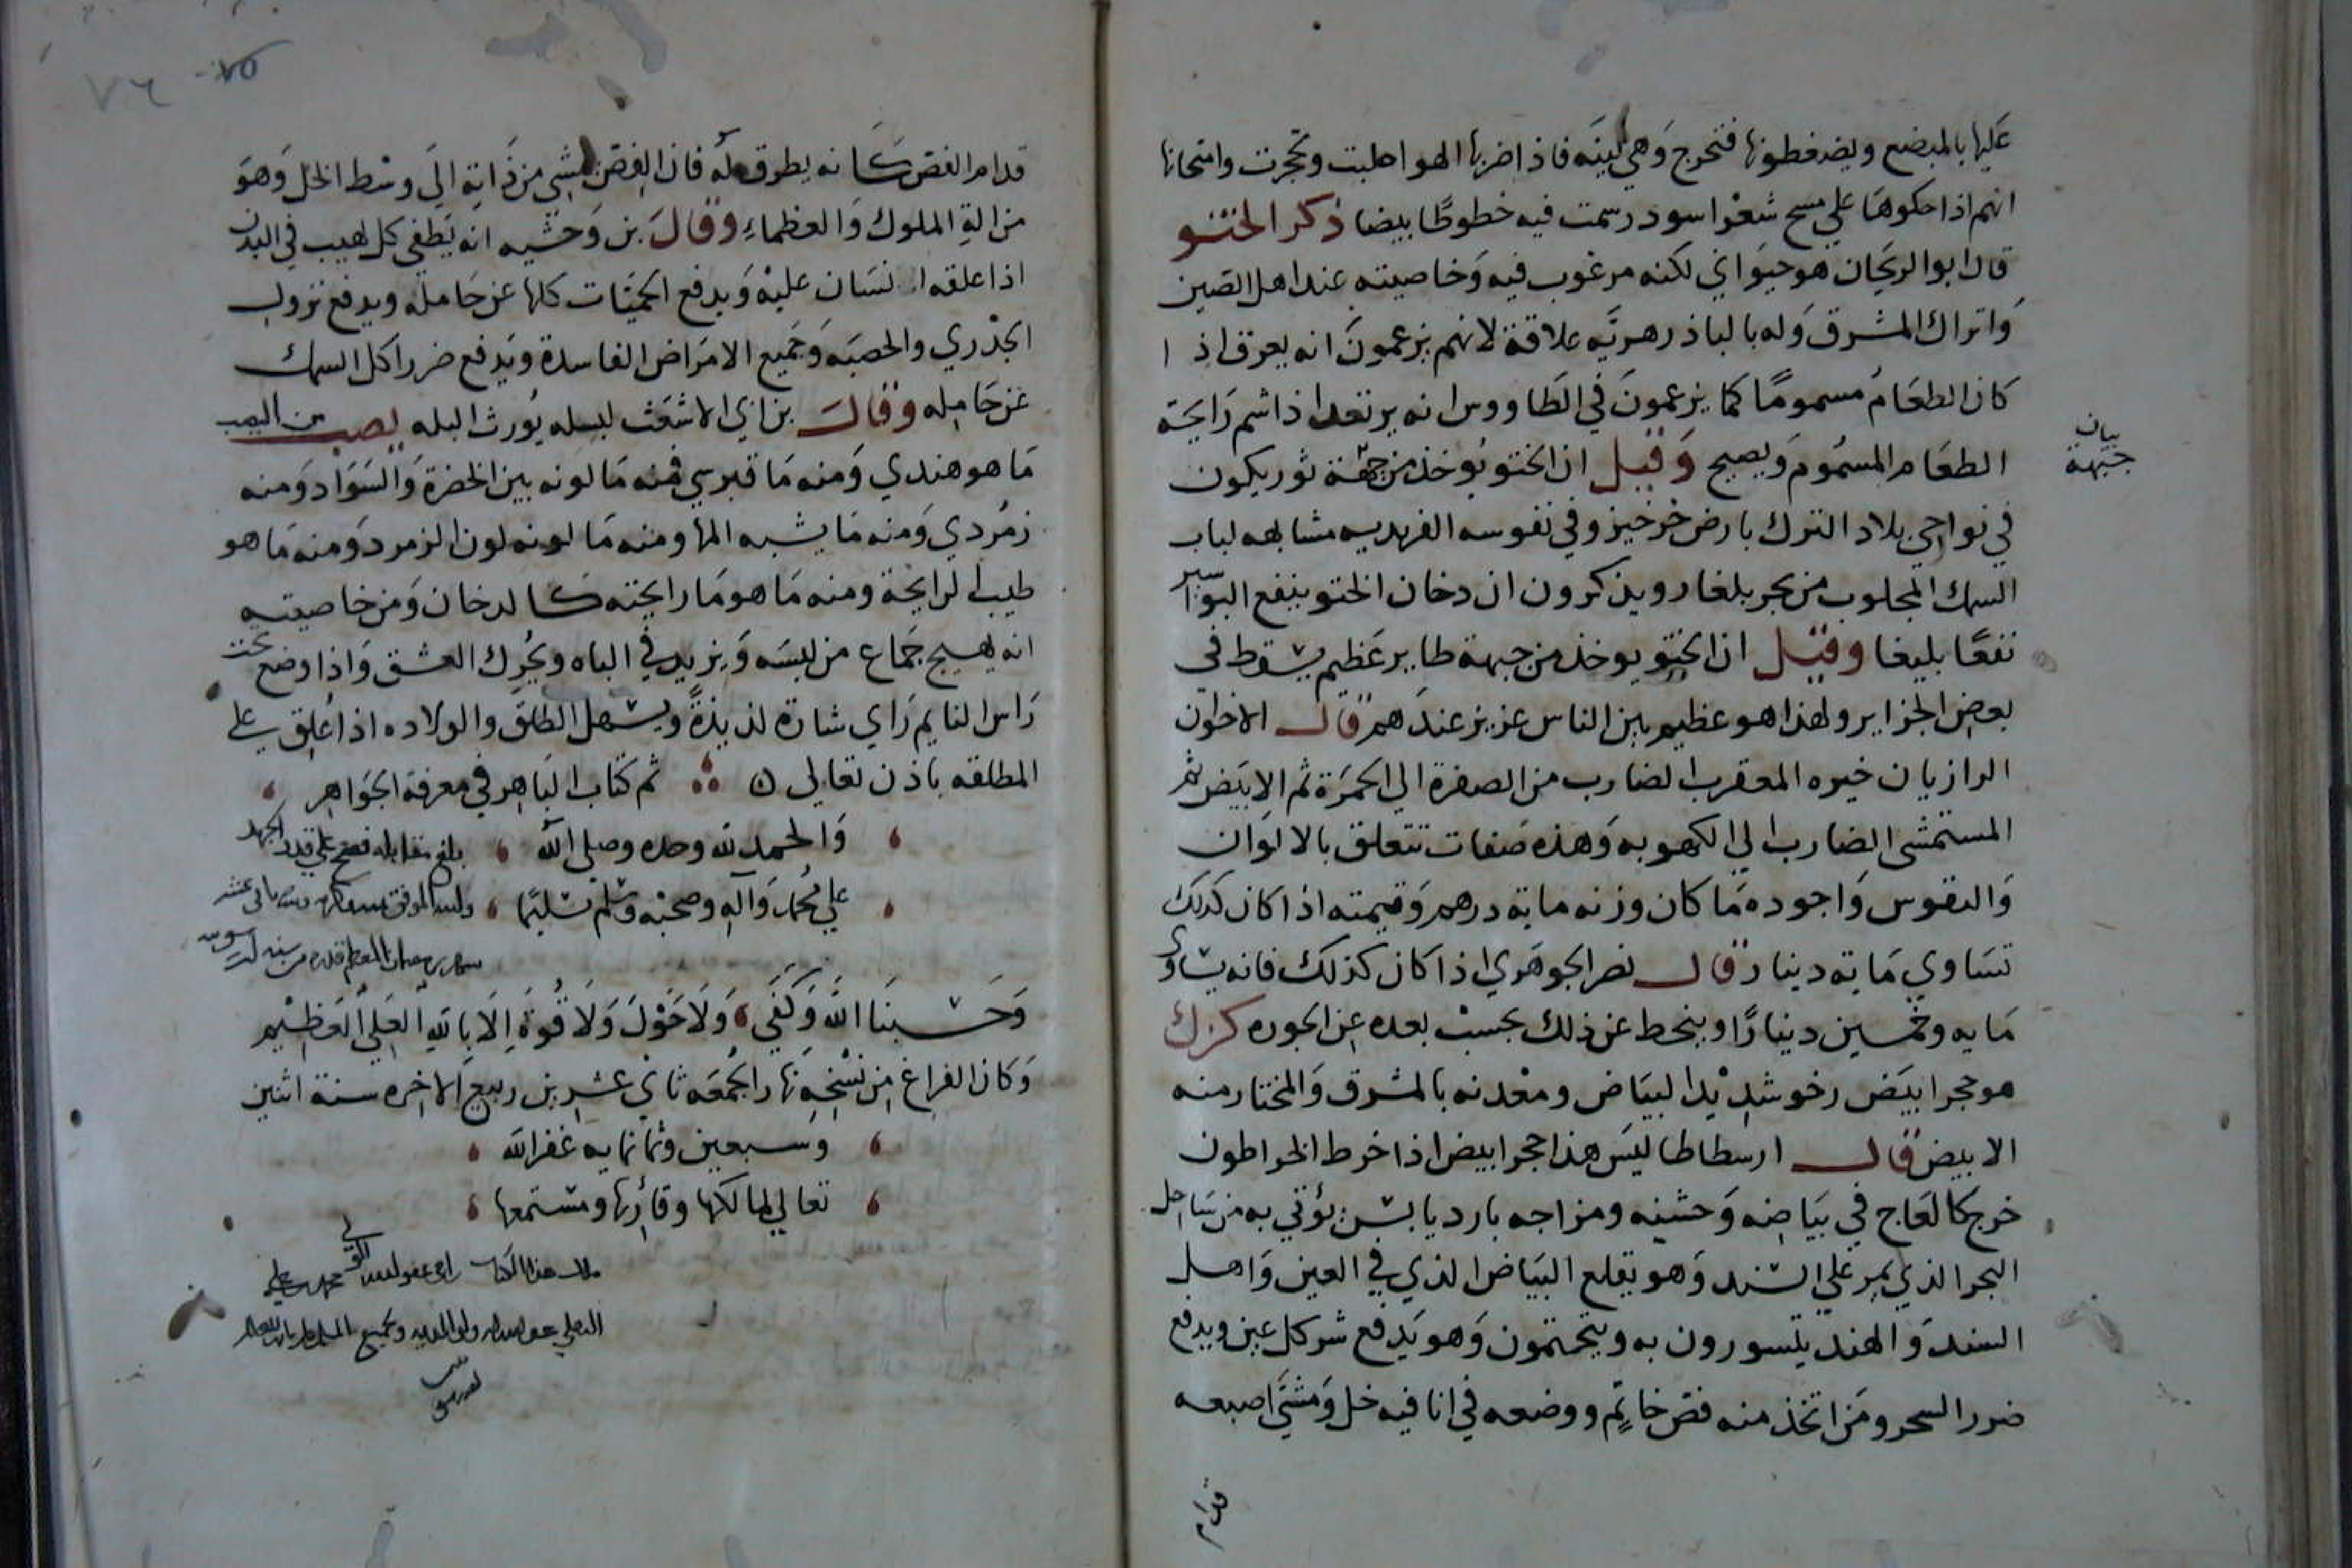 عليها بالمبضع ويضغطونها فتخرج وهي لينه فاذا ضربها الهوا صلبت وتحجرت وامتحانها
انهم اذا حكوها علي مسح شعر اسود رسمت فيه خطوطا بيضا ذكر الختو
قال ابو الريحان هو حيواني لكنه مرغوب فيه وخاصيته عند اهل الصين
واتراك المشرق وله بالباذرهريه علاقة لانهم يزعمون انه يعرق اذ ا
كان الطعام مسموما كما يزعمون في الطاووس انه يرتعد اذا شم رايحة
الطعام المسموم ويصيح وقيل ان الختو يوخذ من جبهة ثور يكون
بيان
جبهة
في نواحي بلاد الترك بارض خرخيز وفي نقوسه الفرنديه مشابهه لباب
السمك المجلوب من بحر بلغار ويذكرون ان دخان الختو ينفع البواسير
نفعا بليغا وقيل ان الختو يوخذ من جبهة طاير عظيم يسقط في
بعض الجزاير ولهذا هو عظيم بين الناس عزيز عندهم قال الاخوان
الرازيان خيره المعقرب الضارب من الصفرة الي الحمرة ثم الابيض ثم
المستمشي الضارب الي الكهوبه وهذه صفات تتعلق بالالوان
والنقوس واجوده ما كان وزنه مايه درهم وقيمته اذا كان كذلك
تساوي مايه دينار قال نصر الجوهري اذا كان كذلك فانه يساوي
مايه وخمسين دينارا وينحط عن ذلك بحسب بعده عن الجوده كزك
هو حجر ابيض رخو شديد البياض ومعدنه بالمشرق والمختار منه
الابيض قال ارسطاطاليس هذا حجر ابيض اذا خرط الخراطون
خرج كالعاج في بياضه وحسنه ومزاجه بارد يابس يؤتي به من ساحل
البحر الذي يمر علي السند وهو يقلع البياض الذي في العين واهل
السند والهند يتسورون به ويتختمون وهو يدفع شر كل عين ويدفع
ضرر السحر ومن اتخذ منه فص خاتم ووضعه في انا فيه خل ومشي اصبعه
قدام
٧٦ ٧٥
قدام الفص كانه يطرق له فان الفص يمشي من ذاته الي وسط الخل وهو
من الة الملوك والعظماء وقال بن وحشيه انه يطفي كل لهيب في البدن
اذا علقه انسان عليه ويدفع الحميات كلها عن حامله ويدفع نزول
الجدري والحصبه وجميع الامراض الفاسدة ويدفع ضرر اكل السمك
عن حامله وقال بن ابي الاشعث لبسله يورث البله يصب من اليصب
ما هو هندي ومنه ما قبرسي فمنه ما لونه بين الخضرة والسواد ومنه
زمردي ومنه ما يشبه المها ومنه ما لونه لون الزمرد ومنه ما هو
طيب الرايحة ومنه ما هو ما رايحته كالدخان ومن خاصيته
انه يهيج جماع من لبسه ويزيد في الباه ويحرك العشق واذا وضع تحت
راس النايم راي شارة لذيذة ويسهل الطلق والولاده اذا علق علي
المطلقه باذن تعالي ثم كتاب الباهر في معرفة الجواهر
والحمد لله وحده وصلي الله بلغ مقابله فصح علي قدر الجهد
علي محمد وآله وصحبه وسلم تسليما
وحسبنا الله وكفي ولا حول ولا قوة الا بالله العلي العظيم
وكان الفراغ من نسخه نهار الجمعه ثاني عشرين ربيع الاخره سنة اثنين
وسبعين وثمانمايه غفر الله
تعالي لمالكها وقارئها ومستمعها
ملك هذا الكتاب